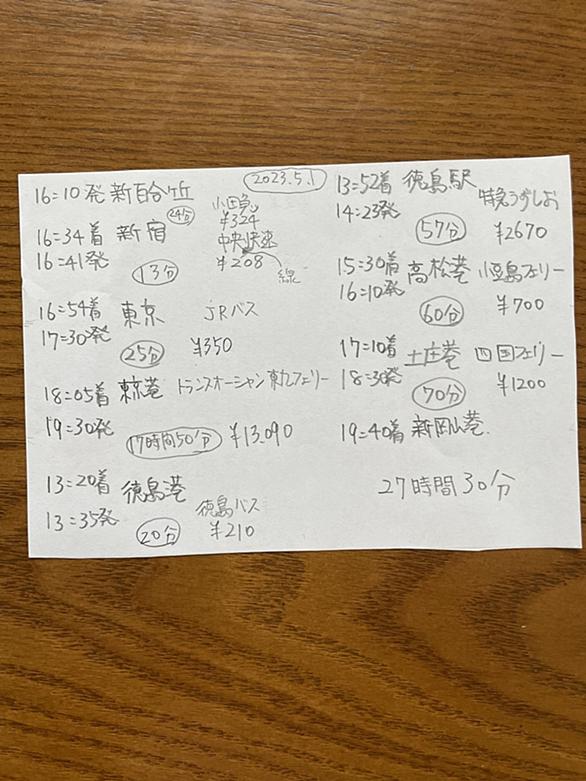 2023.5.1
16=10発 新百合ヶ丘
24分
小田急
¥324
16=34着 新宿
16=41発
13分
中央快速
線
¥208
16=54着 東京
17=30発
JRバス
25分
¥350
18=05着 東京港
19=30発
トランスオーシャン東九フェリー
17時間50分
¥13.090
13=20着 徳島港
13=35発
20分
徳島バス
¥210
13=52着 徳島駅
14=23発
特急うずしお
57分
¥2670
15=30着 高松港
16=10発
小豆島フェリー
60分
¥700
17=10着 土庄港
18=30発
四国フェリー
70分
¥1200
19=40着 新岡山港
27時間30分